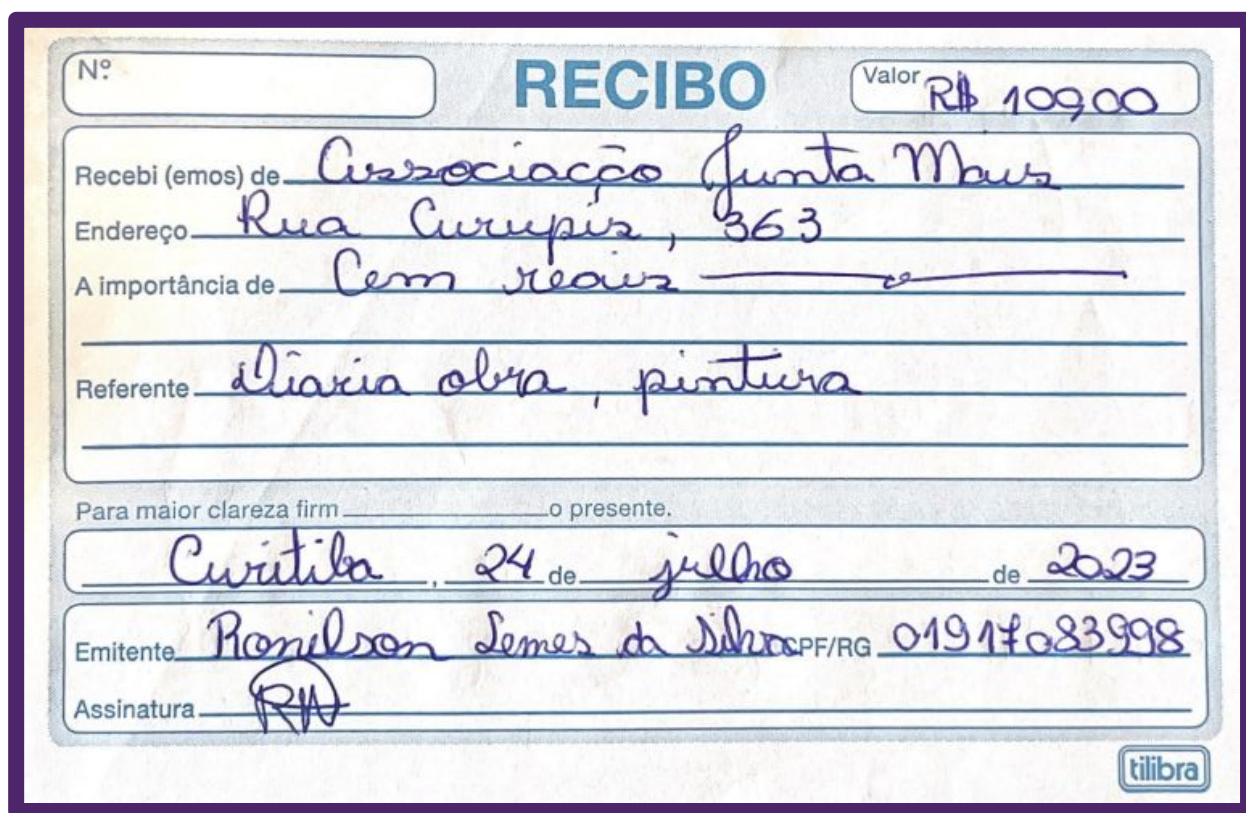 Nº
RECIBO
Valor R$ 100,00
Recebi (emos) de Associação Junta Mais
Endereço Rua Curupis, 363
A importância de Cem reais
Referente Diaria obra, pintura
Para maior clareza firm o presente.
Curitiba, 24 de julho de 2023
Emitente Ronilson Lemes da Silva CPF/RG 01917083998
Assinatura RN
tilibra